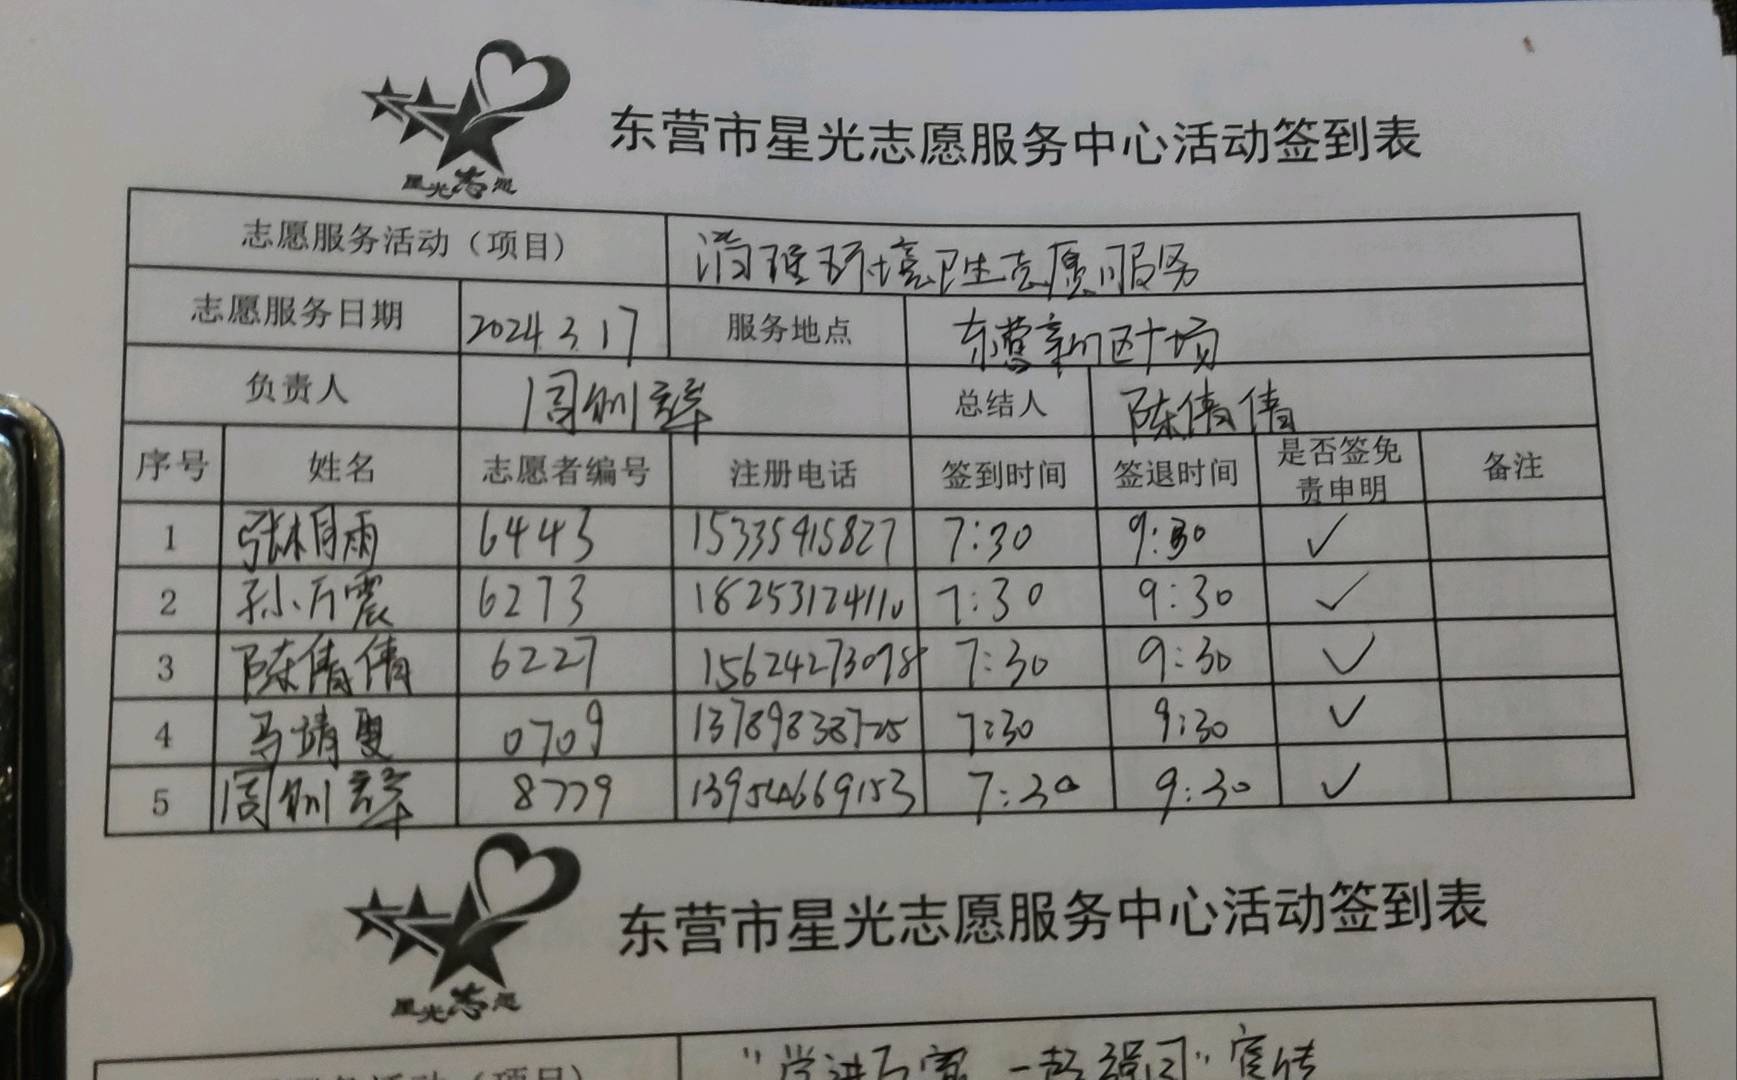 星光志愿
东营市星光志愿服务中心活动签到表
志愿服务活动（项目） 清理环境卫生志愿服务
志愿服务日期 2024.3.17 服务地点 东营新州区广场
负责人 周训譁 总结人 陈倩倩
序号 姓名 志愿者编号 注册电话 签到时间 签退时间 是否签免责申明 备注
1 张楠雨 6443 15335415827 7:30 9:30 ✓
2 孙万震 6273 18253124110 7:30 9:30 ✓
3 陈倩倩 6227 15624273098 7:30 9:30 ✓
4 马靖雯 0709 13789838725 7:30 9:30 ✓
5 8779 13954669153 7:30 9:30 ✓
星光志愿
东营市星光志愿服务中心活动签到表
志愿服务活动（项目） "学进万家 一起强国"宣传